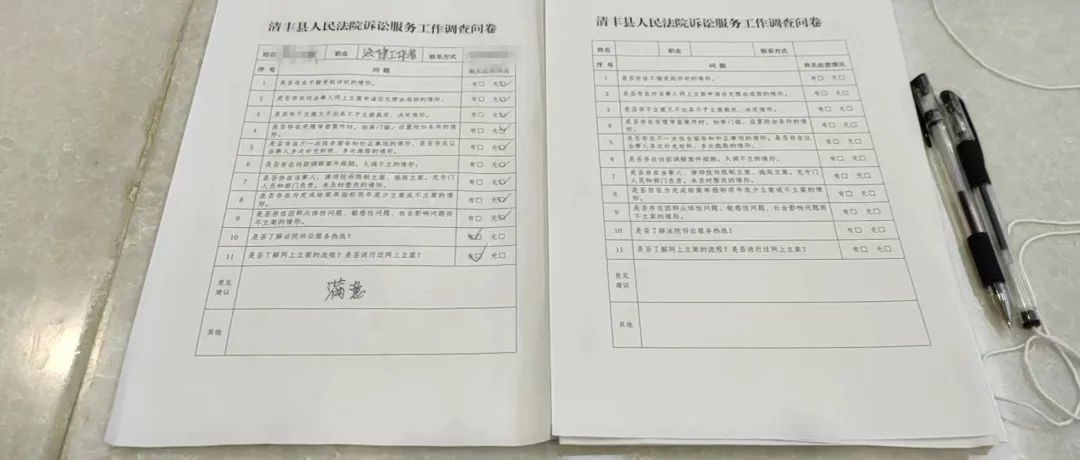 清丰县人民法院诉讼服务工作调查问卷
姓名 职业 法律工作者 联系方式
序号 问题 有无此类情况
1 是否存在不接受起诉状的情形。 有□ 无☑
2 是否存在对当事人网上立案申请怠于处理或超期的情形。 有□ 无☑
3 是否存在不立案又不出具不予立案裁定、决定情形。 有□ 无☑
4 是否存在受理审查案件时,抬高门槛、设置附加条件的情
形。 有□ 无☑
5 是否存在不一次性全面告知补正事项的情形,是否存在让
当事人多次补充材料、多次跑路的情形。 有□ 无☑
6 是否存在诉前调解案件超期、久调不立的情形。 有□ 无☑
7 是否存在当事人、律师投诉限制立案、拖延立案,无专门
人员和部门负责、未及时整改的情形。 有□ 无☑
8 是否存在为完成结案率指标而年底少立案或不立案的情
形。 有□ 无☑
9 是否存在因群众体性问题、敏感性问题、社会影响问题而
不立案的情形。 有□ 无☑
10 是否了解法院诉讼服务热线? 有☑ 无□
11 是否了解网上立案的流程?是否进行过网上立案? 有☑ 无□
意见
建议 满意
其他
清丰县人民法院诉讼服务工作调查问卷
姓名 职业 联系方式
序号 问题 有无此类情况
1 是否存在不接受起诉状的情形。 有□ 无□
2 是否存在对当事人网上立案申请怠于处理或超期的情形。 有□ 无□
3 是否存在不立案又不出具不予立案裁定、决定情形。 有□ 无□
4 是否存在受理审查案件时,抬高门槛、设置附加条件的情
形。 有□ 无□
5 是否存在不一次性全面告知补正事项的情形,是否存在让
当事人多次补充材料、多次跑路的情形。 有□ 无□
6 是否存在诉前调解案件超期、久调不立的情形。 有□ 无□
7 是否存在当事人、律师投诉限制立案、拖延立案,无专门
人员和部门负责、未及时整改的情形。 有□ 无□
8 是否存在为完成结案率指标而年底少立案或不立案的情
形。 有□ 无□
9 是否存在因群众体性问题、敏感性问题、社会影响问题而
不立案的情形。 有□ 无□
10 是否了解法院诉讼服务热线? 有□ 无□
11 是否了解网上立案的流程?是否进行过网上立案? 有□ 无□
意见
建议
其他